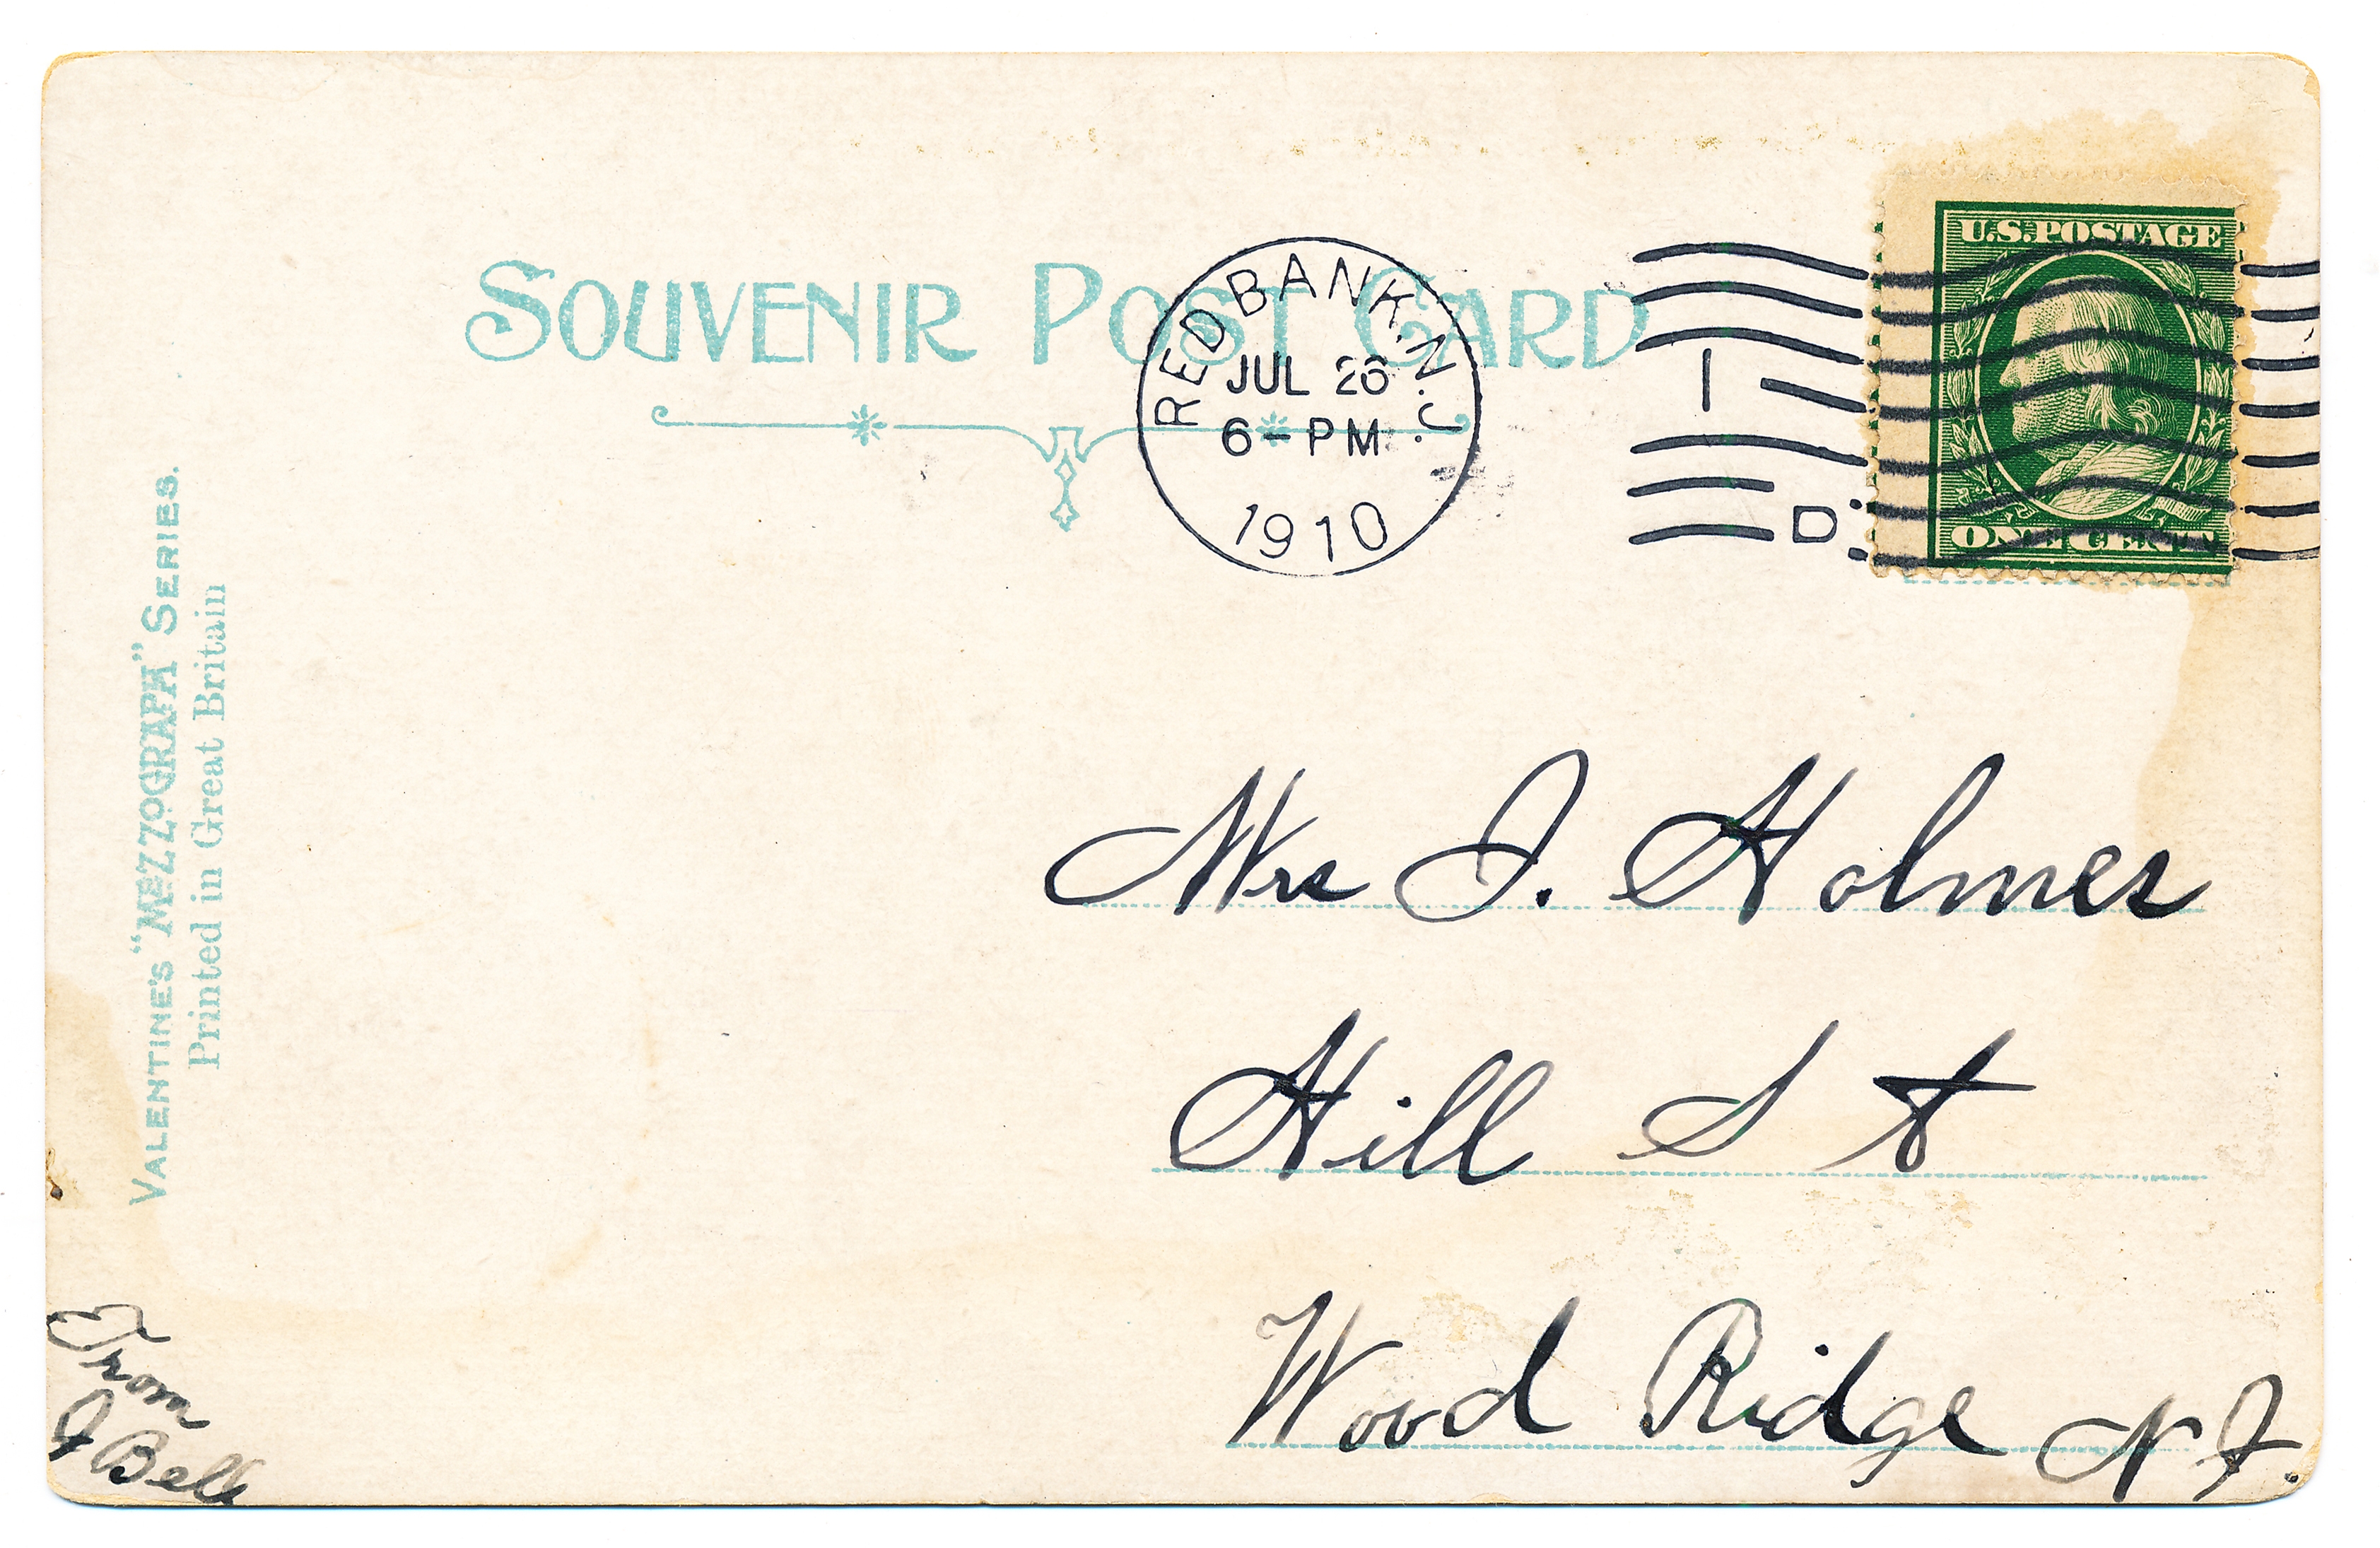 SOUVENIR POST CARD
RED BANK, N.J.
JUL 26
6-PM
1910
1
D.
U.S. POSTAGE
ONE CENT
VALENTINE'S "MEZZOGRAPH" SERIES.
Printed in Great Britain
Mrs J. Holmes
Hill St
Wood Ridge N J.
From
J Bell